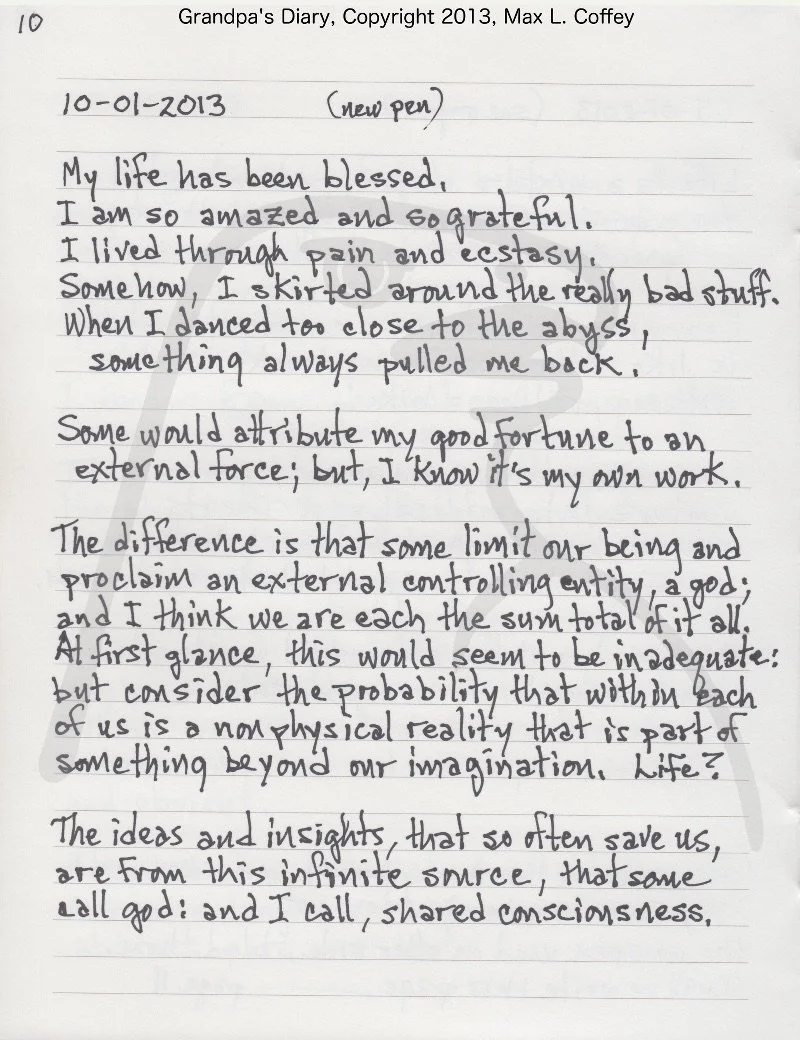 10
Grandpa's Diary, Copyright 2013, Max L. Coffey
10-01-2013 (new pen)
My life has been blessed.
I am so amazed and so grateful.
I lived through pain and ecstasy.
Somehow, I skirted around the really bad stuff.
When I danced too close to the abyss,
something always pulled me back.
Some would attribute my good fortune to an
external force; but, I know it's my own work.
The difference is that some limit our being and
proclaim an external controlling entity, a god;
and I think we are each the sum total of it all.
At first glance, this would seem to be inadequate:
but consider the probability that within each
of us is a nonphysical reality that is part of
something beyond our imagination. Life?
The ideas and insights, that so often save us,
are from this infinite source, that some
call god: and I call, shared consciousness.